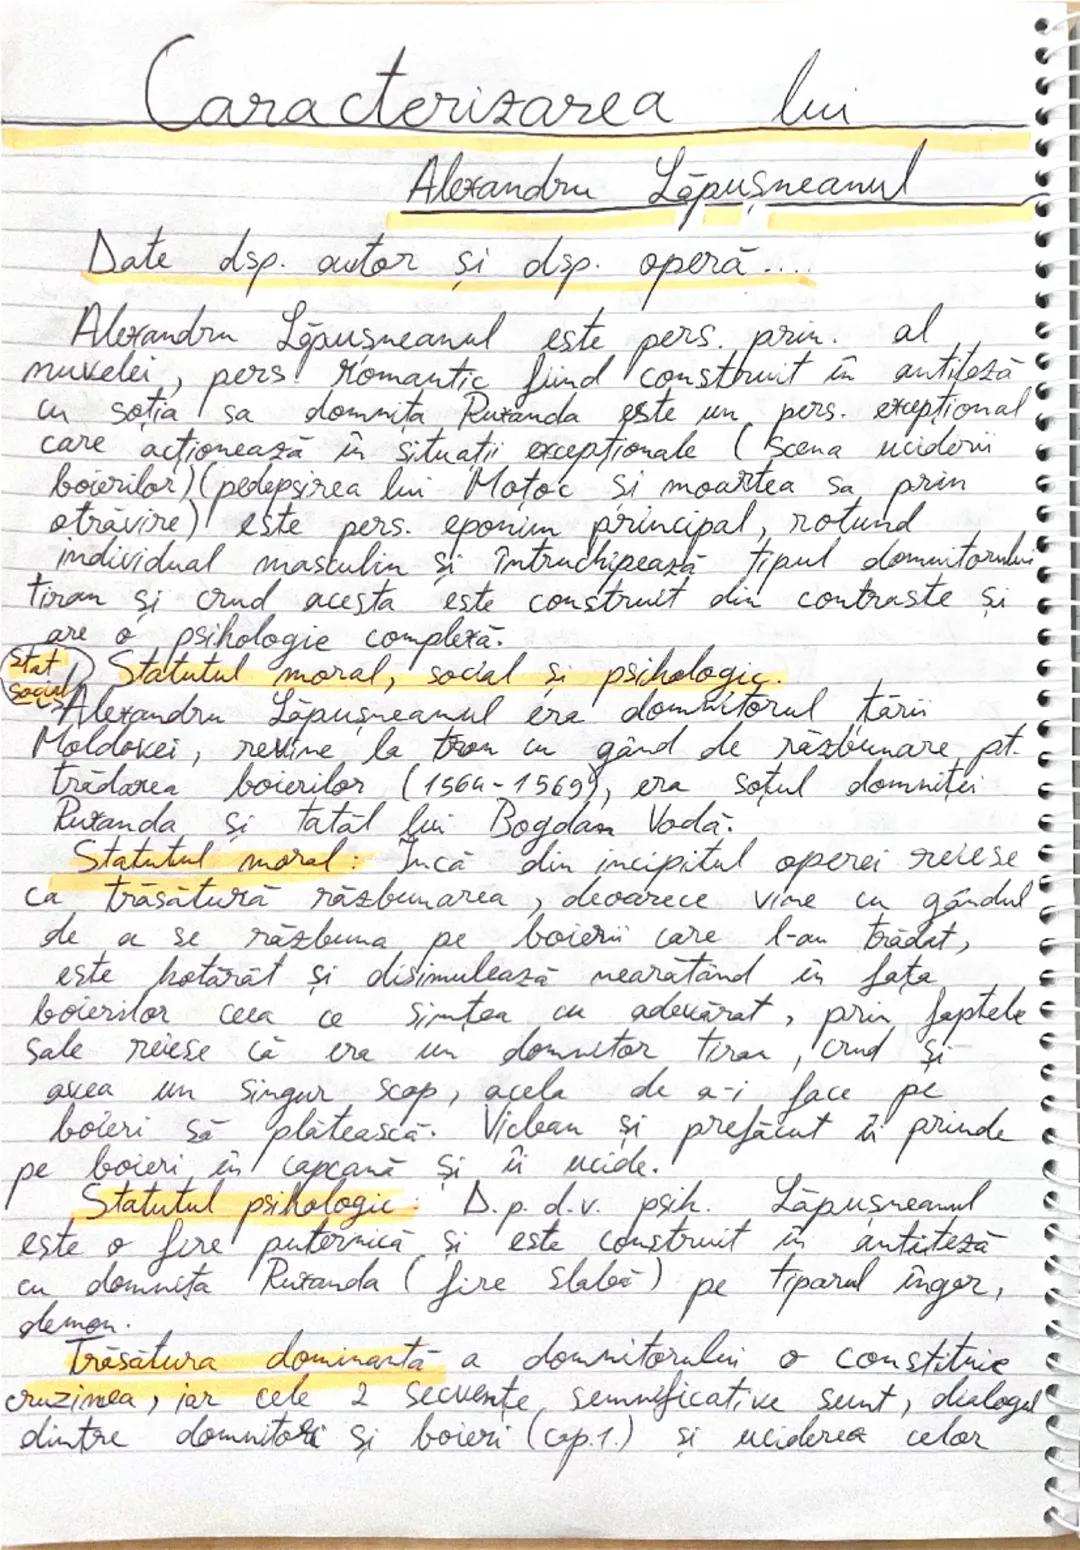 Caracterizarea lui
Alexandru Lăpușneanul
Date dsp. autor și dsp. operă....
Alexandru Lăpușneanul este pers. prin. al
nuvelei, pers. romantic fiind construit în antiteză
cu soția sa domnița Ruxanda este un pers. excepțional
care acționează în situații excepționale (scena uciderii
boierilor)(pedepsirea lui Moțoc și moartea sa prin
otrăvire) este pers. eponim principal, rotund
individual masculin și întruchipează tipul domnitorului
tiran și crud acesta este construit din contraste și
are o psihologie complexă.
Stat social Statutul moral, social și psihologic.
Alexandru Lăpușneanul era domnitorul țării
Moldovei, revine la tron cu gând de răzbunare pt.
trădarea boierilor (1564-1569), era soțul domniței
Ruxanda și tatăl lui Bogdan Vodă.
Statutul moral: Încă din incipitul operei reiese
ca trăsătură răzbunarea, deoarece vine cu gândul
de a se răzbuna pe boierii care l-au trădat,
este hotărât și disimulează nearătând în fața
boierilor ceea ce simțea cu adevărat, prin faptele
sale reiese că era un domnitor tiran, crud și
avea un singur scop, acela de a-i face pe
boieri să plătească. Viclean și prefăcut îi prinde
pe boieri în capcană și îi ucide.
Statutul psihologic: D.p.d.v. psih. Lăpușneanul
este o fire puternică și este construit în antiteză
cu domnița Ruxanda (fire slabă) pe tiparul înger,
demon.
Trăsătura dominantă a domnitorului o constituie
cruzimea, iar cele 2 secvențe semnificative sunt, dialogul
dintre domnitor și boieri (cap.1.) și uciderea celor